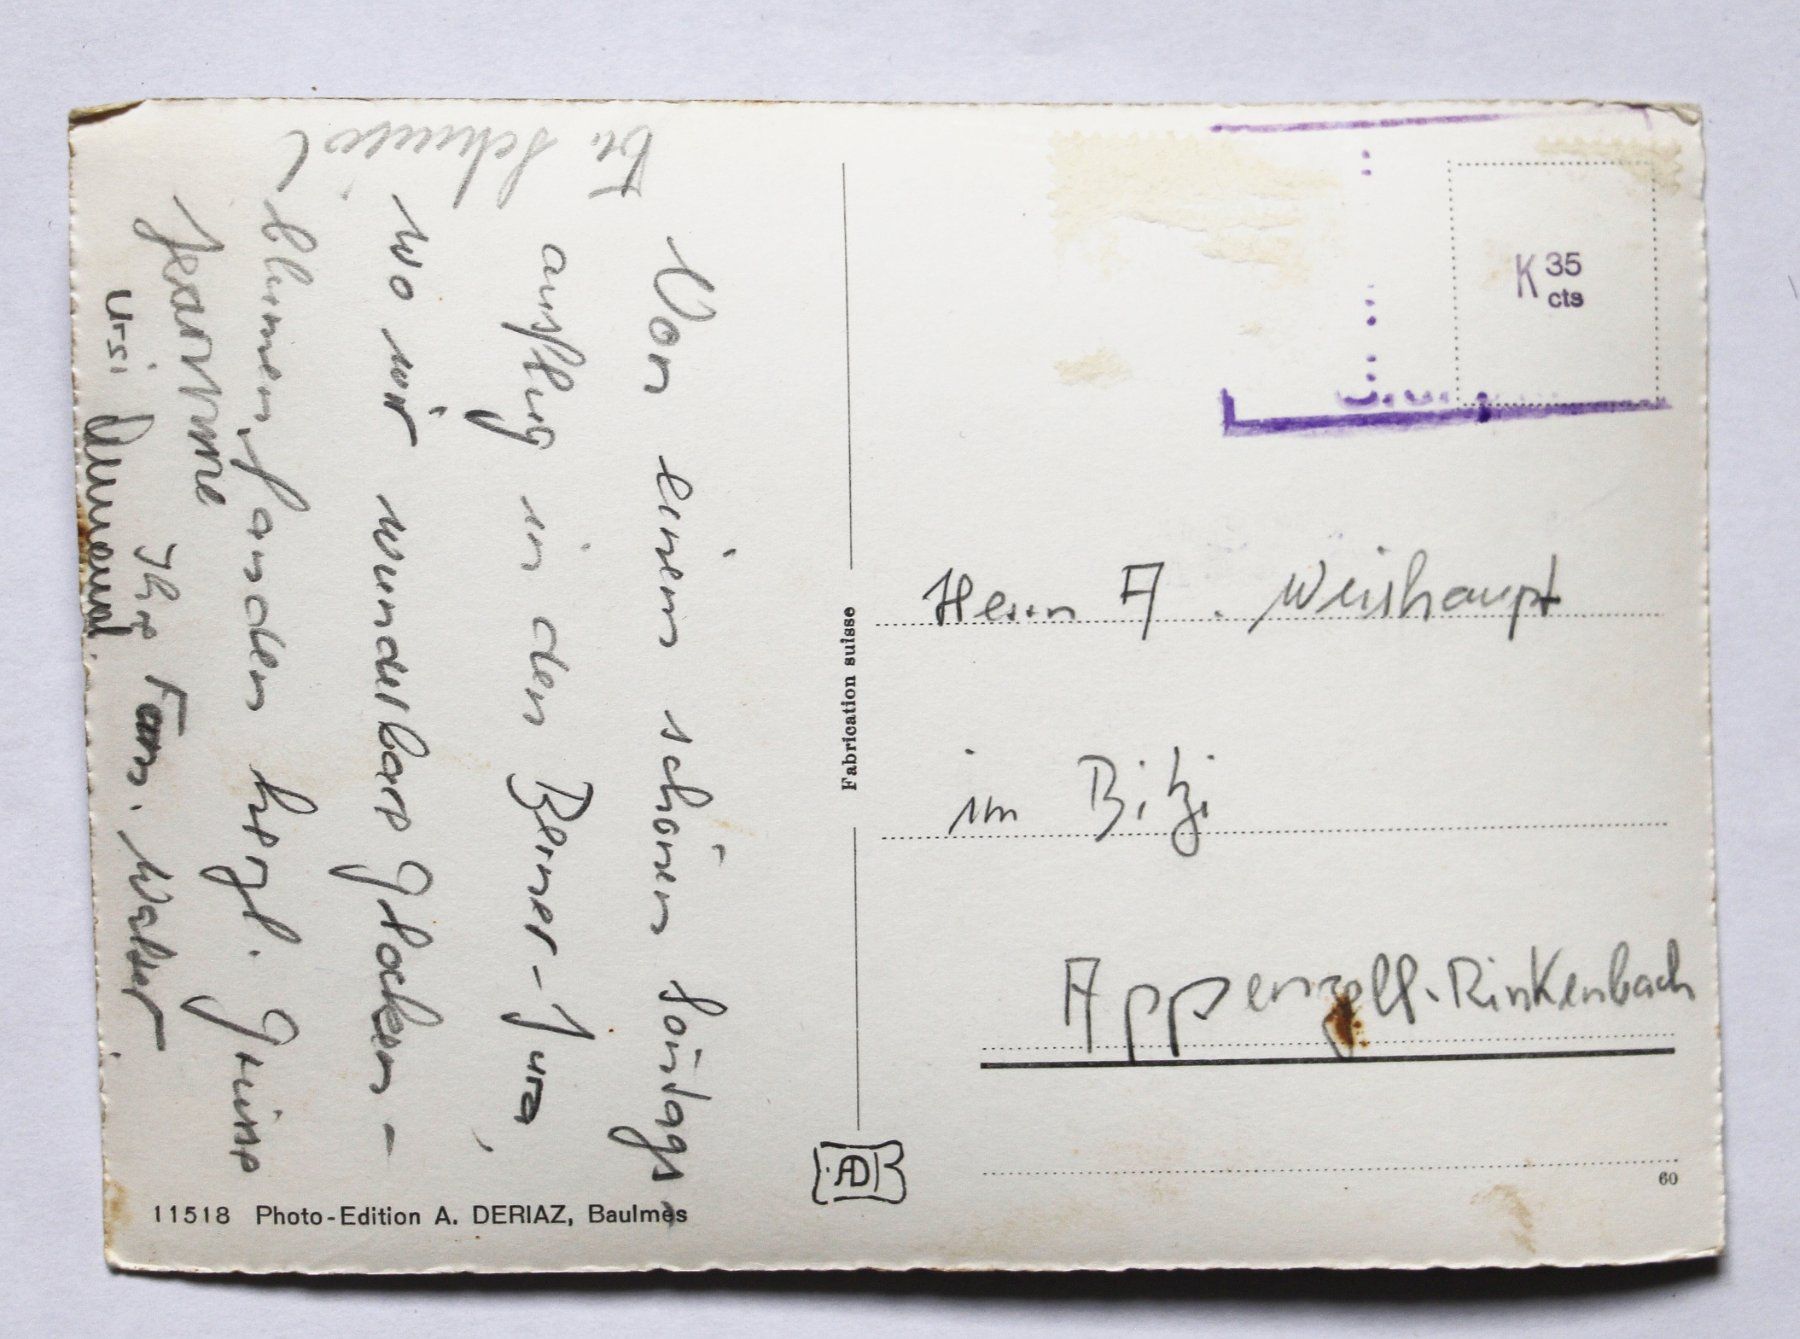 Von einem schönen Sontags-
ausflug in den Berner-Jura,
wo wir wunderbare Glocken-
blumen fanden herzl. Grüsse
Jeannine Ihre Fam. Walser
Ursi
Fr.
Fabrication suisse
K 35
cts
Herrn A. Weishaupt
im Bitzi
Appenzell-Rinkenbach
AD
60
11518 Photo-Edition A. DERIAZ, Baulmes